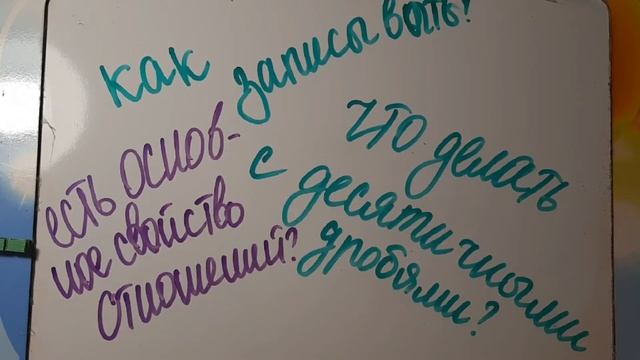 как записывать!
есть основ-
ное свойство
отношений?
что делать
с десятичными
дробями?